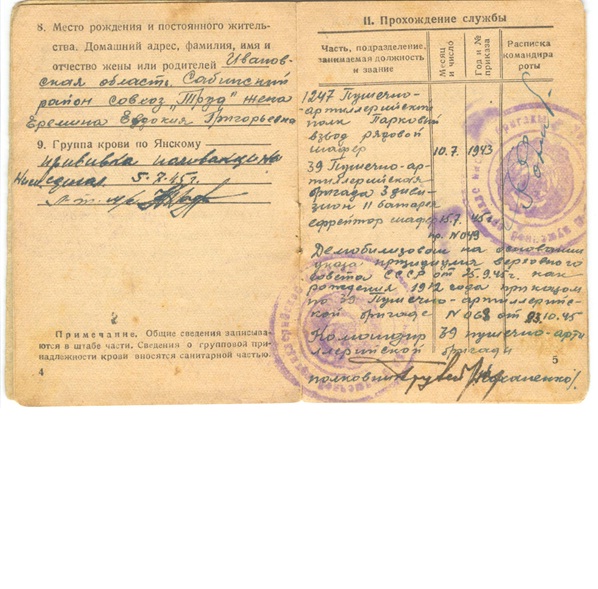 8. Место рождения и постоянного житель-
ства. Домашний адрес, фамилия, имя и
отчество жены или родителей Иванов-
ская область Сабинский
район совхоз "Труд" жена
Еремина Евдокия Григорьевна
9. Группа крови по Янскому
прививка поливакцина
5.7.45г.
Примечание. Общие сведения записыва-
ются в штабе части. Сведения о групповой при-
надлежности крови вносятся санитарной частью.
4
II. Прохождение службы
Часть, подразделение, занимаемая должность и звание
Месяц и число
Год и № приказа
Расписка командира роты
1247 Пушечно-
артиллерийский
полк Парковый
взвод рядовой
шофер 10.7. 1943
39 Пушечно-ар-
тиллерийская
бригада 3 диви-
зион 11 батарея
ефрейтор шофер 15.7. 45г.
пр. №049
Демобилизован на основании
указа президиума верховного
совета СССР от 25.9.45г. как
рождения 1912 года приказом
по 39 Пушечно-артиллерийс-
кой бригаде №068 от 23.10.45
Командир 39 пушечно-арти
ллерийской бригады
5
полковник